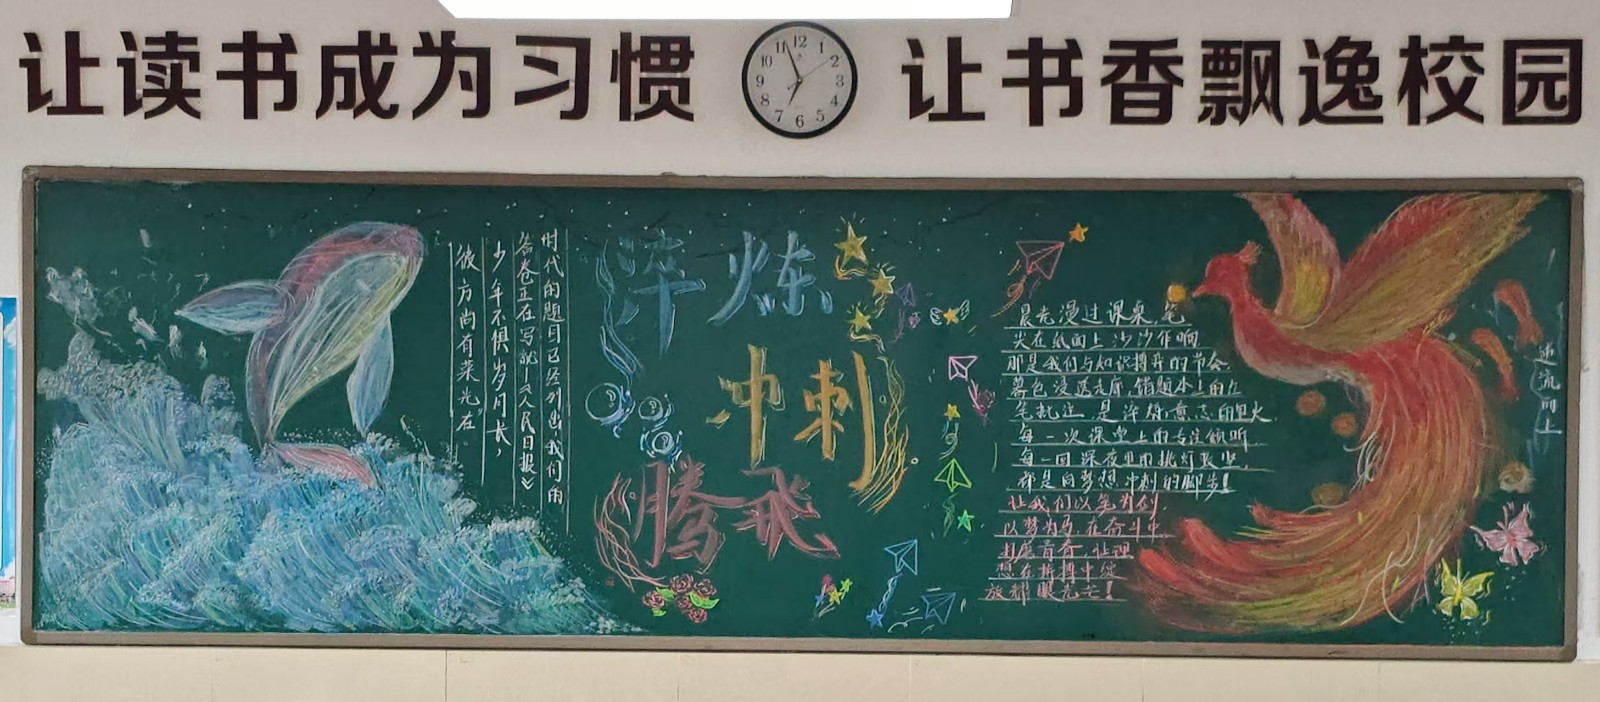 让读书成为习惯
让书香飘逸校园
12
1
2
3
4
5
6
7
8
9
10
11
时代的题目已经列出我们的
答卷正在写就—《人民日报》
少年不惧岁月长，
彼方尚有荣光在"
淬炼
冲刺
腾飛
晨光漫过课桌，笔
尖在纸面上沙沙作响
那是我们与知识搏弈的节会
暮色浸透走廊，错题本上的红
笔批注，是淬炼意志的星火
每一次课堂上的专注倾听
每一回深夜里的挑灯
都是向梦想冲刺的脚步！
让我们以笔为剑，
以梦为马，在奋斗中
青春，让理
想在拼搏中绽
放耀眼光芒！
逆流而上